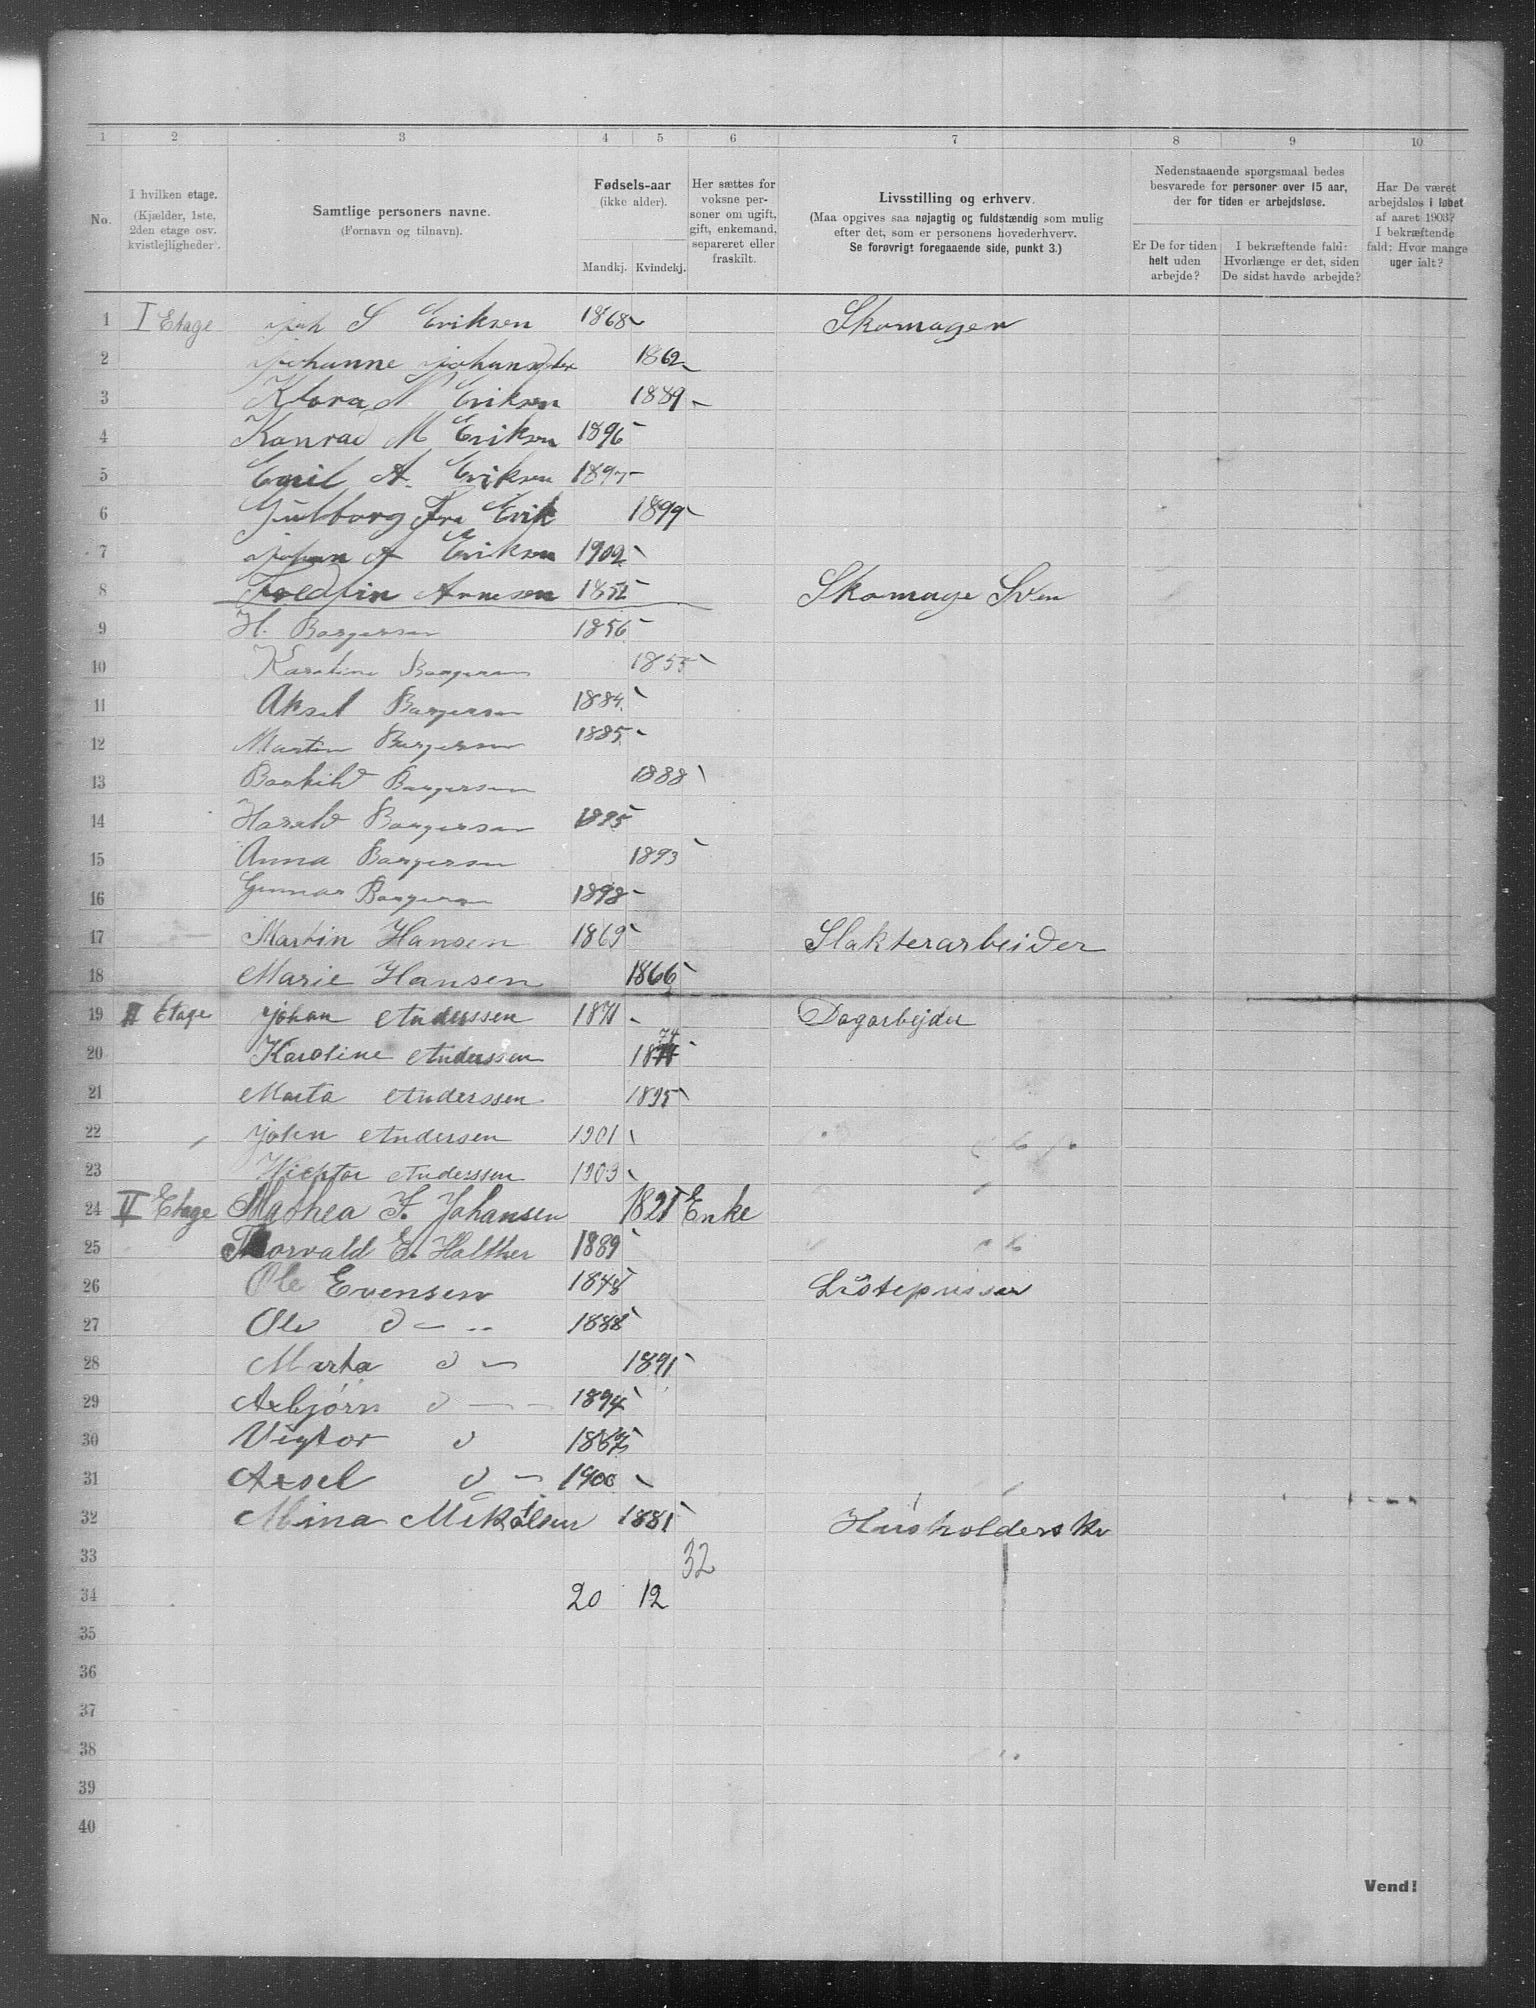 1 2 3 4 5 6 7 8 9 10
No.
I hvilken etage.
(Kjælder, 1ste,
2den etage osv.
kvistlejligheder).
Samtlige personers navne.
(Fornavn og tilnavn).
Fødsels-aar
(ikke alder).
Mandkj. Kvindekj.
Her sættes for
voksne per-
soner om ugift,
gift, enkemand,
separeret eller
fraskilt.
Livsstilling og erhverv.
(Maa opgives saa nøjagtig og fuldstændig som mulig
efter det, som er personens hovederhverv.
Se forøvrigt foregaaende side, punkt 3.)
Nedenstaaende spørgsmaal bedes
besvarede for personer over 15 aar,
der for tiden er arbejdsløse.
Er De for tiden
helt uden
arbejde?
I bekræftende fald:
Hvorlænge er det, siden
De sidst havde arbejde?
Har De været
arbejdsløs i løbet
af aaret 1903?
I bekræftende
fald: Hvor mange
uger ialt?
1 I Etage Joh S Eriksen 1868 Skomager
2 Johanne 1862
3 Klara N. Eriksen 1889
4 Konrad M Eriksen 1896
5 Emil A. Eriksen 1897
6 Gulborg Erik 1899
7 Johan A Eriksen 1902
8 Arnesen 1852 Skomage Sven
9 H. Borgersen 1856
10 Karoline Borgersen 1855
11 Aksel Borgersen 1884
12 Martin Borgersen 1885
13 Borgersen 1888
14 Harald Borgersen 1895
15 Anna Borgersen 1893
16 Gunnar Borgersen 1898
17 Martin Hansen 1869 Slakterarbeider
18 Marie Hansen 1866
19 II Etage Johan Anderssen 1871 Dagarbejder
20 Karoline Anderssen 1874
21 Marta Anderssen 1895
22 John Andersen 1901
23 Wicktor Anderssen 1903
24 IV Etage Mathea F. Johansen 1821 Enke
25 Thorvald E. Halther 1889
26 Ole Evensen 1848 Listepusser
27 Ole d - - 1888
28 Marta d - 1891
29 Asbjørn d - - 1894
30 Vigtor d
31 Axsel d - 1900
32 Mina Mikalsen 1881 Husholderske
33 32
34 20 12
35
36
37
38
39
40
Vend!